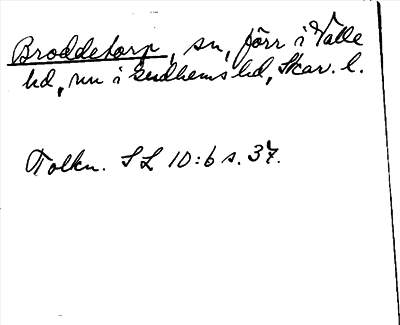 Broddetorp, sn, förr i Valle
hd, nu i Gudhems hd, Skar. l.
Tolkn. SL 10:6 s. 37.